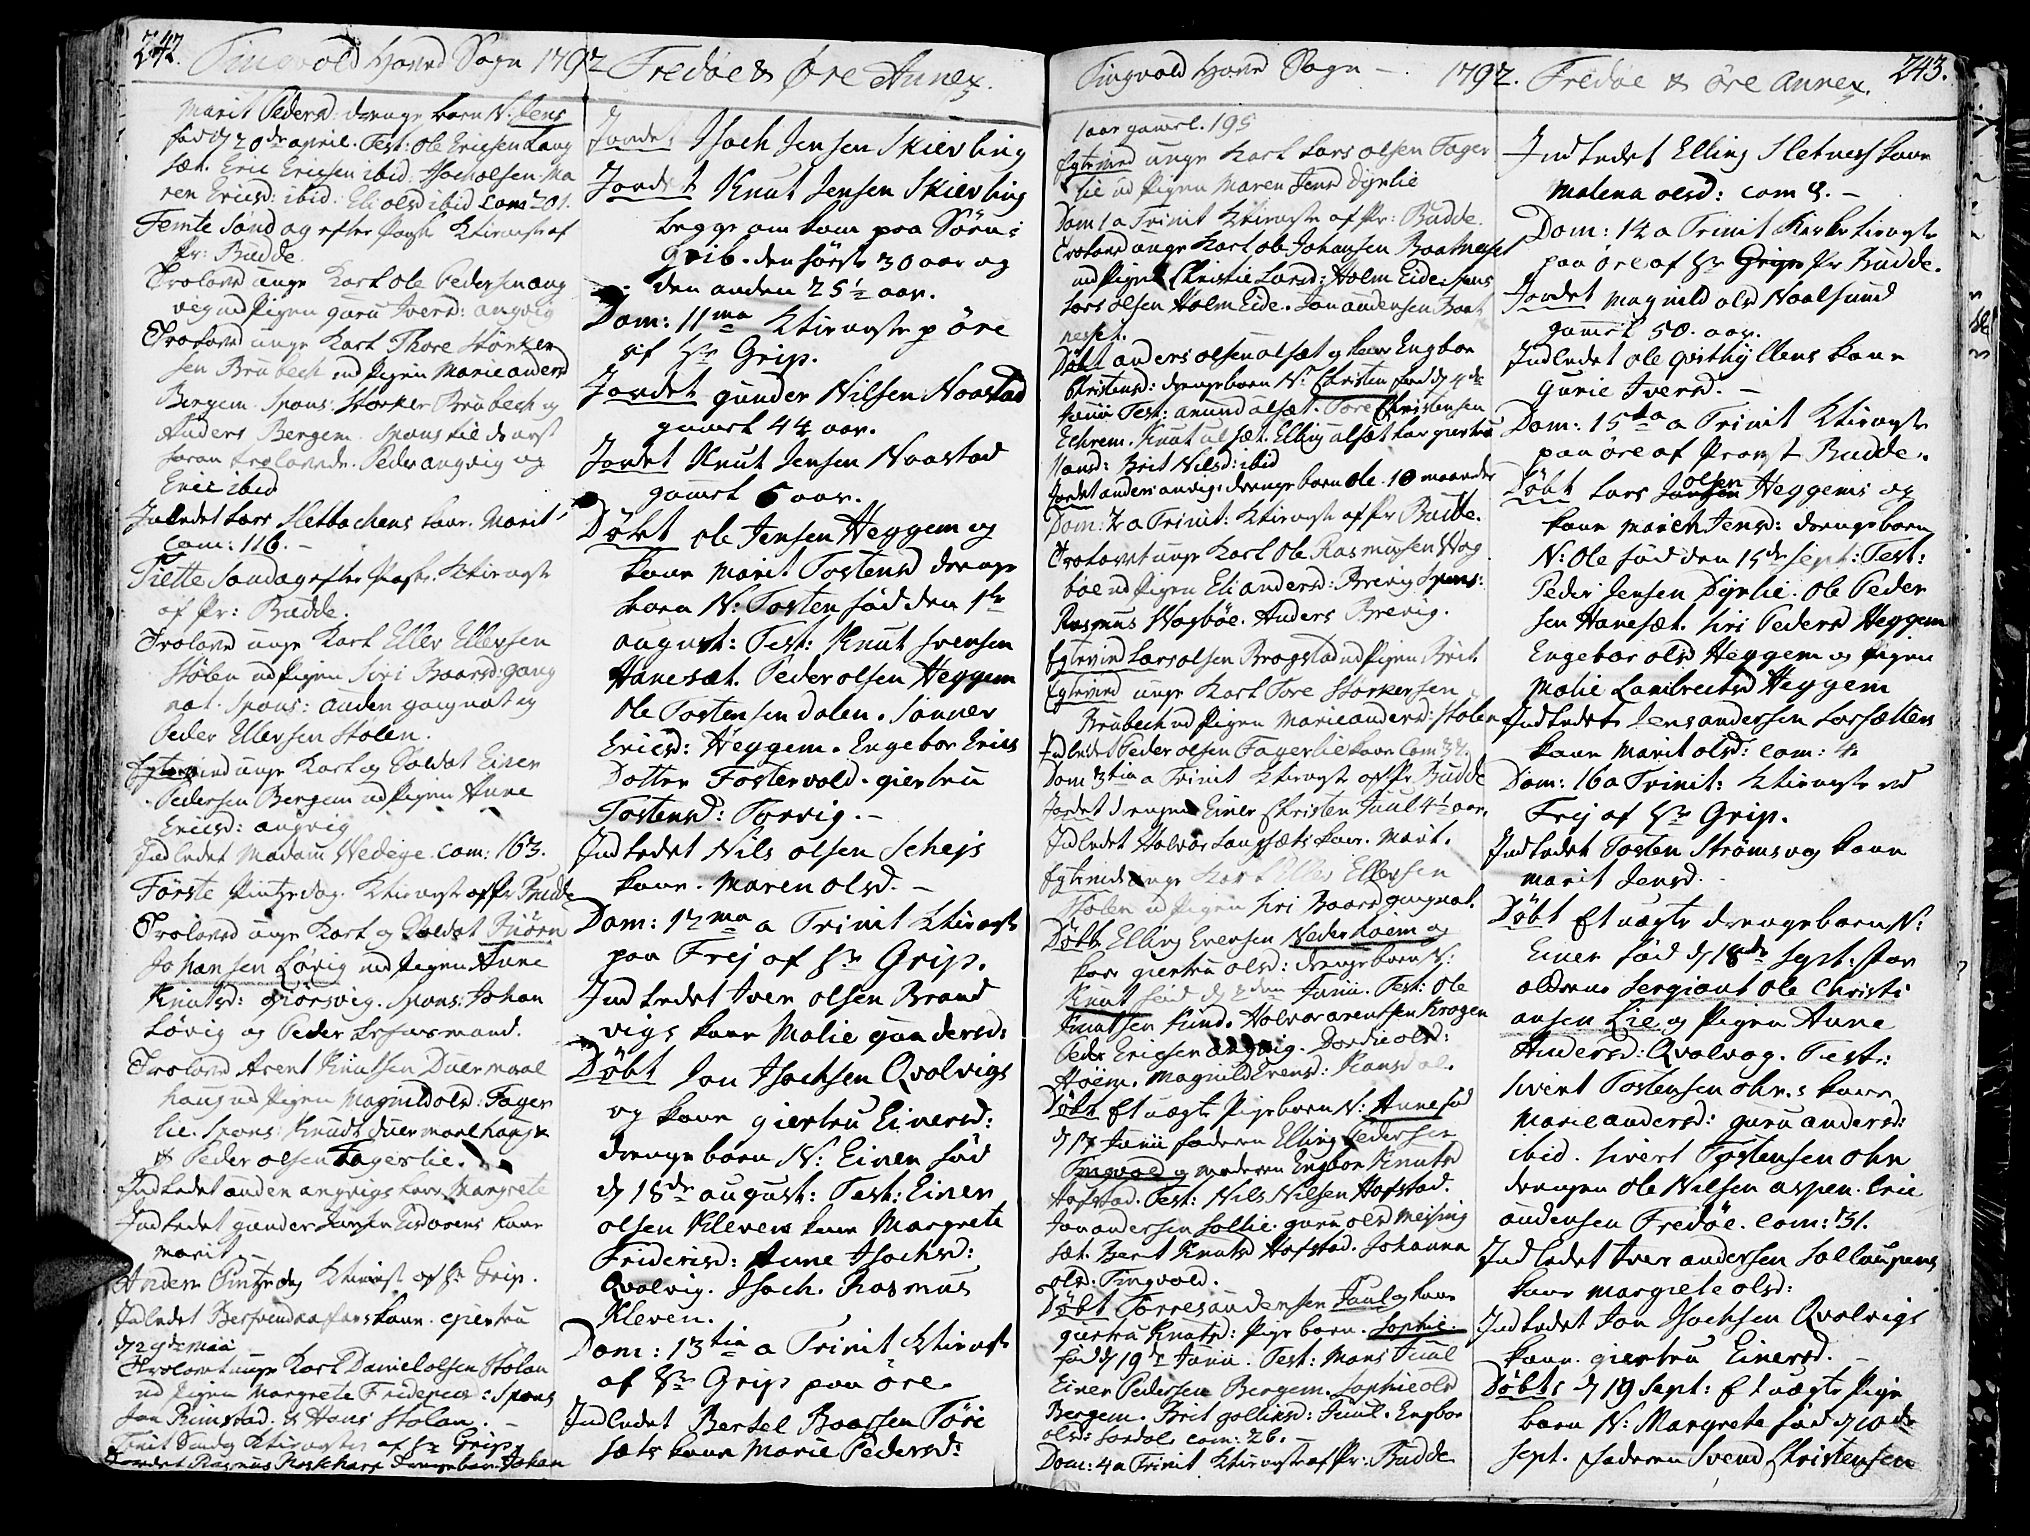 242. Tingvold Hoved Sogn 1792
Marit Pedersd: drenge barn N: Jens
fød d 20de april. Test: Ole Ericsen Lang
sæt. Eric Ericsen ibid. Isach olsen. Ma
ren Ericsd: ibid. Eli olsd ibid Com 201.
Femte Søndag efter Paask
Pr: Budde.
Trolovd unge Karl Ole Pedersen ang
vig ud Pigen guru Iversd: angvig
Trolovd unge Karl Thore Størker
sen Brubech ud Pigen Marie andersd
Bergem. Spons: Størker Brubech og
Anders Bergem. Spons til de først
foran trolovede. Peder angvig og
Eric ibid
Indledet Lars Sletbachens kone. Marit
Com: 116. –
Siette Søndag efter Paask.
af Pr: Budde.
Trolovd unge Karl Eller Ellersen
Stølen ud Pigen Siri Baarsd: gang
nat. Spons: anden gangnat og
Peder Ellersen Stølen.
Egteviet unge Karl og Soldat Einer
Pedersen Bergem ud Pigen Anne
Ericsd: angvig
Indledet Madam Wedege. Com: 163.
Første Pintzedag. af Pr Budde
Trolovd unge Karl og Soldat Biørn
Johansen Løvig ud Pigen Anne
Knutsd: Spons: Johan
Løvig og Peder
Trolovd Arent Knutsen Duermaal
haug ud Pigen Magnild olsd: Fager
lie. Spons: Knudt Duermaal haug
& Peder olsen Fagerlie.
Indledet anden angvigs kone Margrete
Indledet gunder Jensen kone
Marit
Anden Pintzedag af Hr Grip.
Indledet kone giertru
d 29de Maii
Trolovt unge Karl Daniel olsen Stølan
ud Pigen Margrete Spons
Jon Rimstad. & Hans Stølan. –
af Hr Grip
Jordet Rasmus drengebarn Johan
Fredøe & Øre Annex.
Jordet Isach Jensen Skievling
Jordet Knut Jensen Skievling
begge om kom paa Søen i
Grib. den første 30 aar og
den anden 25½ aar.
Dom: 11ma p øre
af Hr Grip.
Jordet gunder Nilsen Naastad
gammel 44 aar.
Jordet Knut Jensen Naastad
gammel 6 aar.
Døbt ole Jensen Heggem og
kone Marit Tostensd drenge
barn N: Tosten fød den 1te
august: Test: Knut Svensen
Hanesæt. Peder olsen Heggem
Ole Tostensen Dalen. Sønnev
Ericsd: Heggem. Engebor Erics
Dotter Fostervold. giertru
Tostensd: Torvig. –
Indledet Nils olsen Schejs
kone. Maren olsd. –
Dom: 12ma a Trinit
paa Frej af Hr Grip.
Indledet Iver olsen Brand
vigs kone Malie gundersd:
Døbt Jon Isachsen Qvalvigs
og kone giertru Einersd:
drenge barn N: Einer fød
d 18de august: Test: Einer
olsen Kleven kone Margrete
Friderisd: Anne Isachsd:
Qvalvig. Isach. Rasmus
Kleven.
Dom: 13tia a Trinit
af Hr Grip paa øre.
Indledet Bersel Baarsen Töri
sæts kone Marie Pedersd:
Tingvold Hoved Sogn –. 1792. Fredøe & Øre Annex. 243.
1 aar gammel. 195
Egteviet unge Karl Lars olsen Fager
lie ud Pigen Maren Jensd Dyrlie
Dom 1 a Trinit af Pr: Budde.
Trolovd unge Karl ole Johansen Baatneset
ud Pigen Christie Larsd: Holm Eide. Spons
Lars olsen Holm Eide. Jon andersen Baat
nesset.
Døbt anders olsen ulsæt og kone Engbor
Christensd: drengebarn N: Christen fød d 4de
Junii Test: arund ulsæt. Tore Christensen
Echrem. Knut ulsæt. Elling ulsæt kone giertru
Hansd: Brit Nilsd: ibid
Jordet anders anvigs drenge barn Ole. 10 maaneder
Dom: 2 a Trinit: af Pr Budde.
Trolovet unge Karl Ole Rasmusen Wog
bøe ud Pigen Eli andersd: Brevig Spons:
Rasmus Wogbøe. Anders Brevig.
Egteviet Lars olsen Brogstad ud Pigen Brit.
Egteviet unge Karl Tore Størkersen
Brubech ud Pigen Marie andersd: Stolen
Indledet Peder olsen Fagerlie kone Com 32.
Dom 3tia a Trinit af Pr Budde
Jordet drengen Einer Christen Juul 4½ aar.
Indledet Halvor Langsæts kone. Marit.
Egteviet unge Karl Eller Ellersen
Stolen ud Pigen Siri Baarsd gangnat.
Døbt Elling Evensen Nederhoem og
kone giertru olsd: drengebarn N:
Knut fød d 2den Junii. Test: Ole
Knutsen Kind. Halvor arentsen Krogen
Peder Ericsen angvig. Dordie olsd:
Høem. Magnild Evensd: Kansdal.
Døbt Et uægte Pigebarn N: Anne fød
d 17 Junii faderen Elling Pedersen
Tingvold og moderen Engbor Knutsd
Hofstad. Test: Nils Nilsen Hofstad.
Jon andersen Sollie. guru olsd Meising
sæt. Berit Knutsd Hofstad. Johanna
olsd: Tingvold.
Døbt Torres andersen Juul og kone
giertru Knutsd: Pige barn. Sophie.
fød d 19de Junii. Test: Mons Juul
Einer Pedersen Bergem. Sophie olsd
Bergem. Brit gulliksd: Juul. Engbor
olsd: Sordal. Com: 26. –
Dom: 4 a Trinit af Pr: Budde
Indledet Elling Sletnes kone
Malena olsd: Com 8. –
Dom: 14 a Trinit
paa øre af Hr Pr Budde.
Jordet Magnild olsd Naalsund
gammel 50. aar.
Indledet ole Qvithyllens kone
Gurie Iversd. –
Dom: 15ta a Trinit
paa øre af Provst Budde.
Døbt Lars olsen Heggems og
kone Marit Jensd: drengebarn
N: Ole fød den 15de Sept: Test:
Peder Jensen Dyrlie. Ole Peder
sen Hanesæt. Siri Pedersd Heggem
Engebor olsd Heggem og Pigen
Malie Lambrectsd Heggem
Indledet Jens andersen
kone Marit olsd: Com: 4
Dom: 16 a Trinit: ud
Frej af Hr Grip.
Indledet Tosten Strømsvog kone
Marit Jensd.
Døbt Et uægte drengebarn N:
Einer fød d 18de Sept: For
ældrene Sergiant Ole Christi
ansen Lie og Pigen Anne
Andersd: Qvalvog. Test:
Sivert Tostensen kone
Marie andersd: guru andersd:
ibid. Sivert Tostensen
drengen Ole Nilsen aspen. Eric
andersen Fredøe. Com: 31.
Indledet Iver andersen
kone Margrete olsd:
Indledet Jon Isachsen Qvalvigs
kone. giertru Einersd. –
Døbt d 19 Sept: Et uægte Pige
barn N: Margrete fød d 10de
Sept. Faderen Svend Christensen